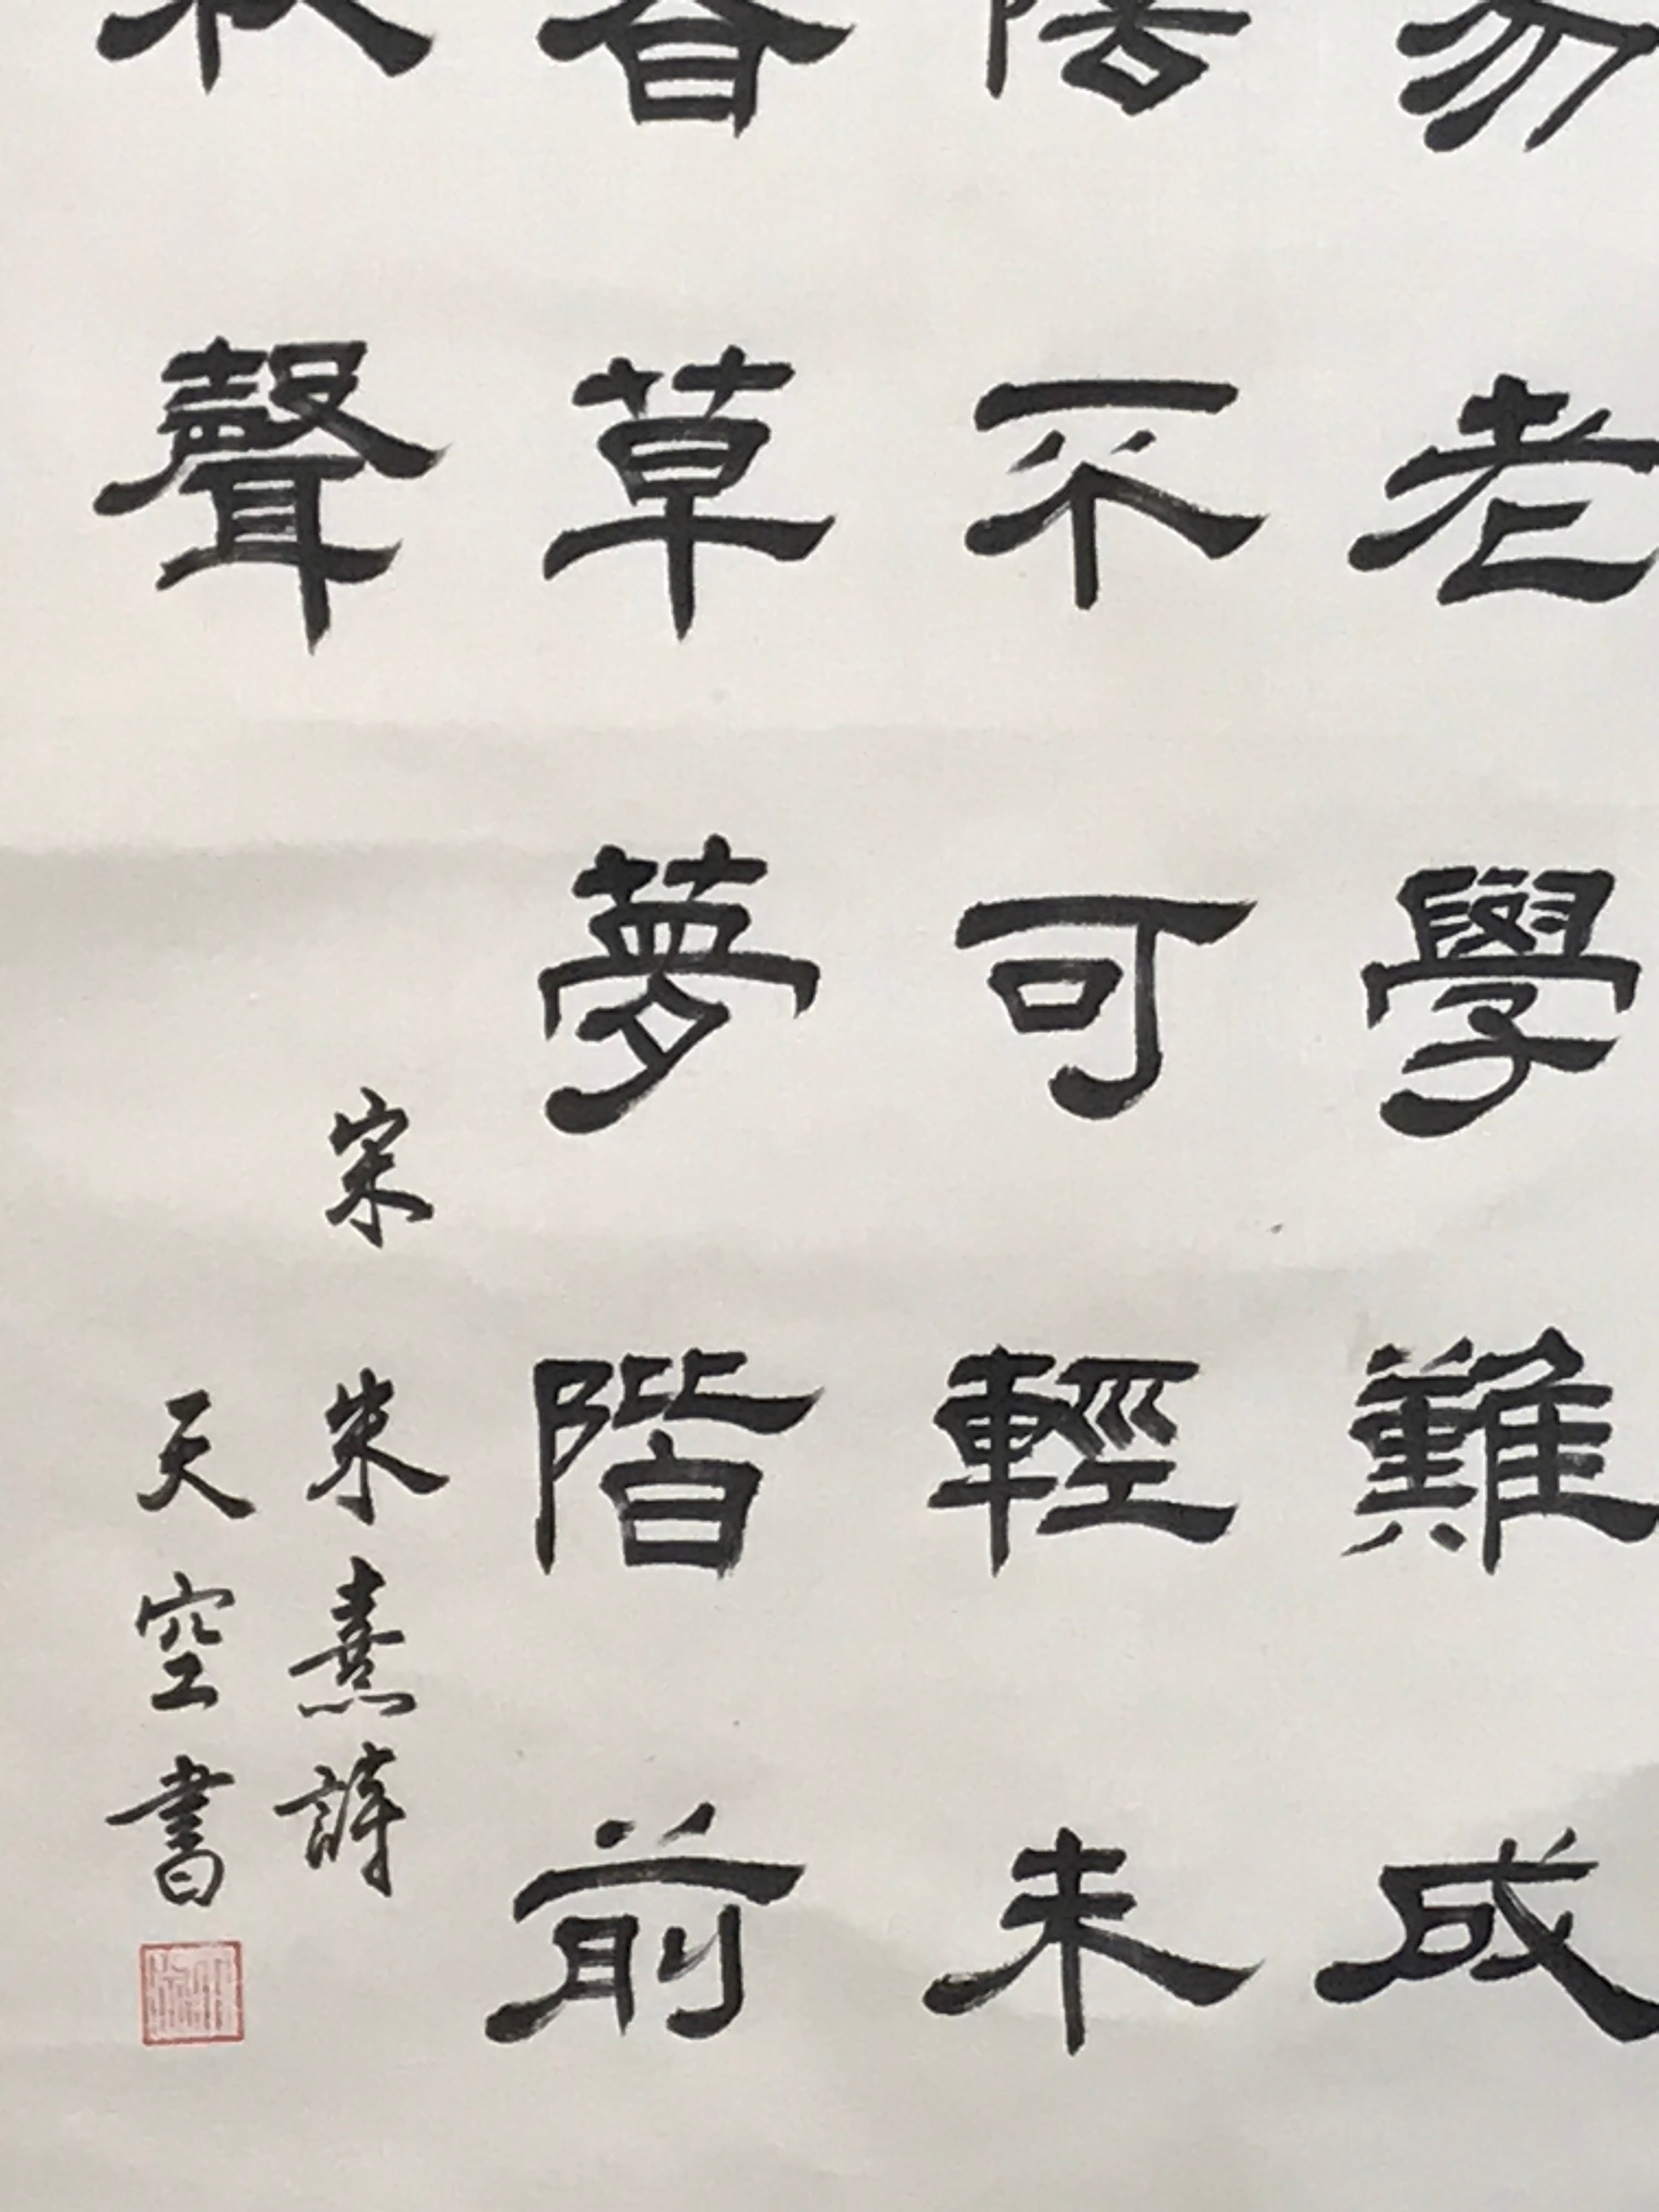 易老學難成
陰不可輕未
春草夢階前
秋聲
宋 朱熹詩
天空書